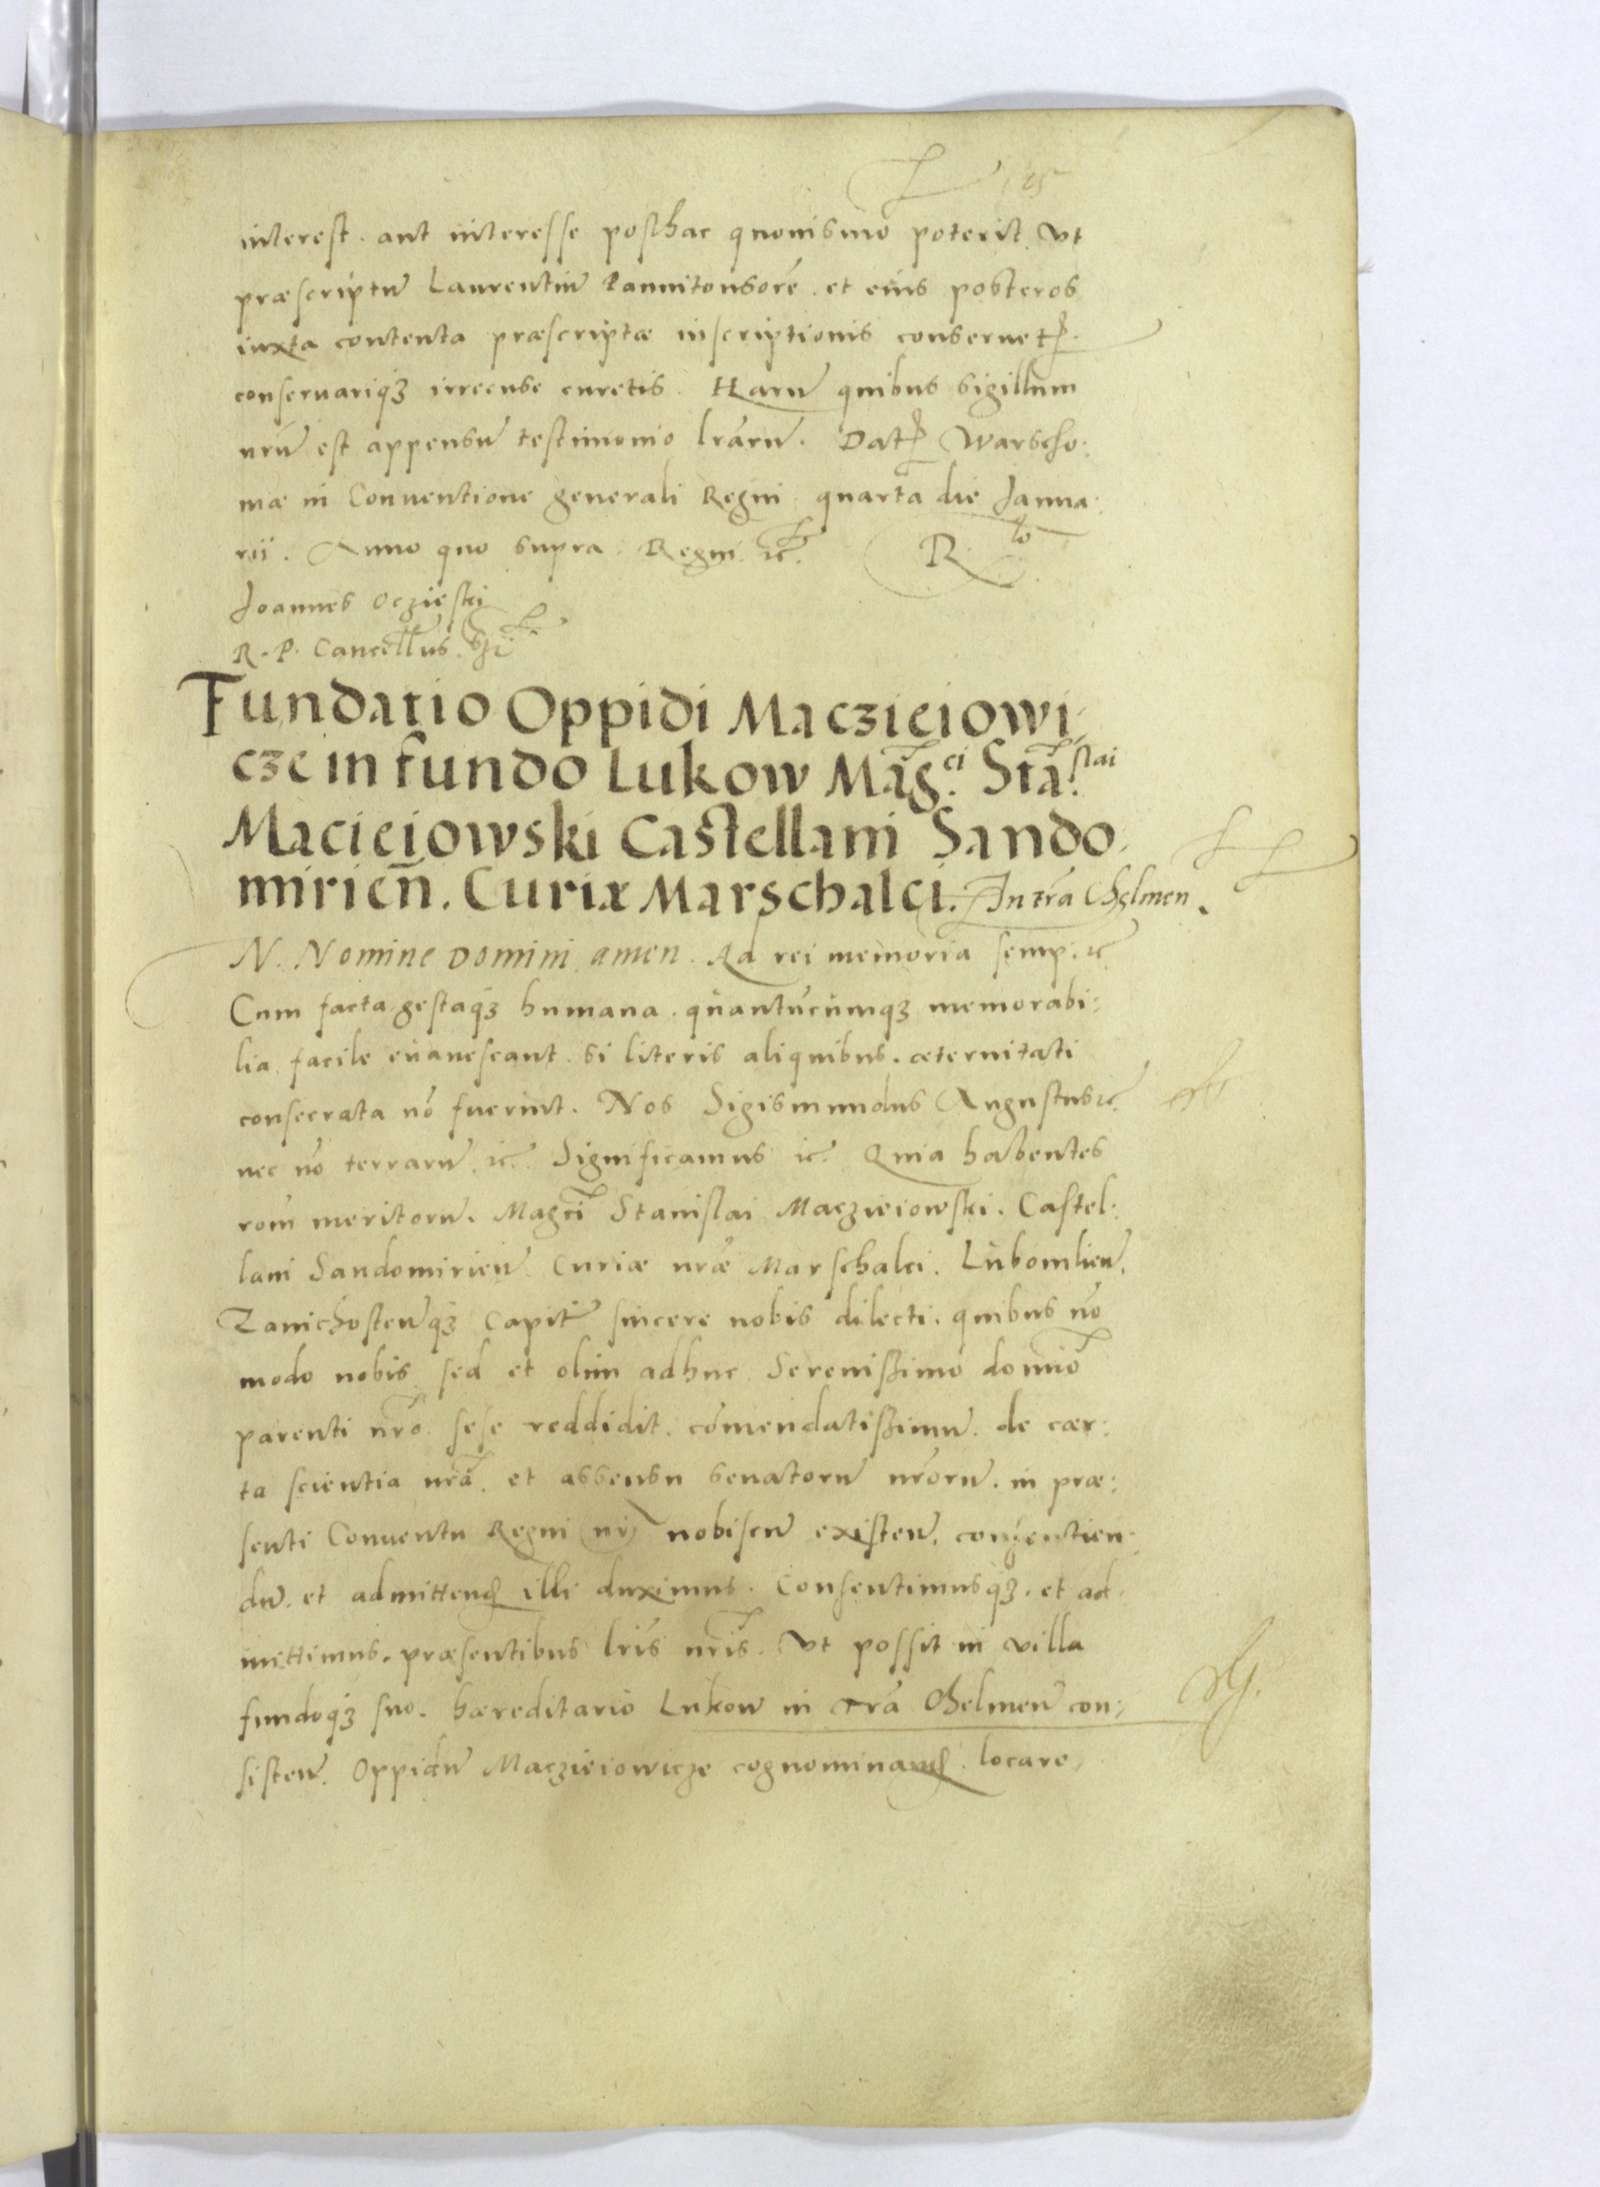 interest. aut interesse posthac quouismo poterit. Vt
præscriptū Laurentiū Pannitonsorē. et eius posteros
iuxta contenta præscriptæ inscriptionis conseruet
conseruariqȝ irrecuse curetis. Harū quibus sigillum
nrū est appensū testimonio lrārū. Dat Warscho:
uiæ in Conuentione generali Regni quarta die Janua:
rii. Anno quo supra. Regni ꝛc̄. R
Joannes Oczieski
R. P. Cancellūs. sst
Fundatio Oppidi Maczieiowi:
cze in fundo Lukow Mag.ci Sta.slai
Macieiowski Castellani Sando:
mirien̄. Curiæ Marschalci. In trā Chelmen.
N. Nomine Domini amen. Ad rei memoria semp. ꝛc̄
Cum facta gestaqȝ humana. quantūcūmqȝ memorabi:
lia facile euanescant. si literis aliquibus. æternitati
consecrata nō fuerint. Nos Sigismundus Augustus ꝛc̄.
nec nō terrarū ꝛc̄. Significamus ꝛc̄. Quia habentes
rōm meritorū. Magci Stanislai Maczieiowski. Castel:
lani Sandomirien̄. Curiæ nræ Marschalci. Lubomlien̄.
Zanichosten̄qȝ Capit sincere nobis dilecti. quibus nō
modo nobis sed et olim adhuc Serenissimo domīo
parenti nrō. sese reddidit. cōmendatissimū. de cær:
ta scientia nrā. et assensu senatorū nrōrū. in præ:
senti Conuentu Regni nobiscū existen̄. consentien:
dū. et admittend illi duximus. Consentimusqȝ. et ad:
mittimus. præsentibus lris nris. Vt possit in villa
fundoqȝ suo. hæreditario Lukow in trā Chelmen̄ con:
sisten̄. Oppidū Maczieiowicze cognominand. locare